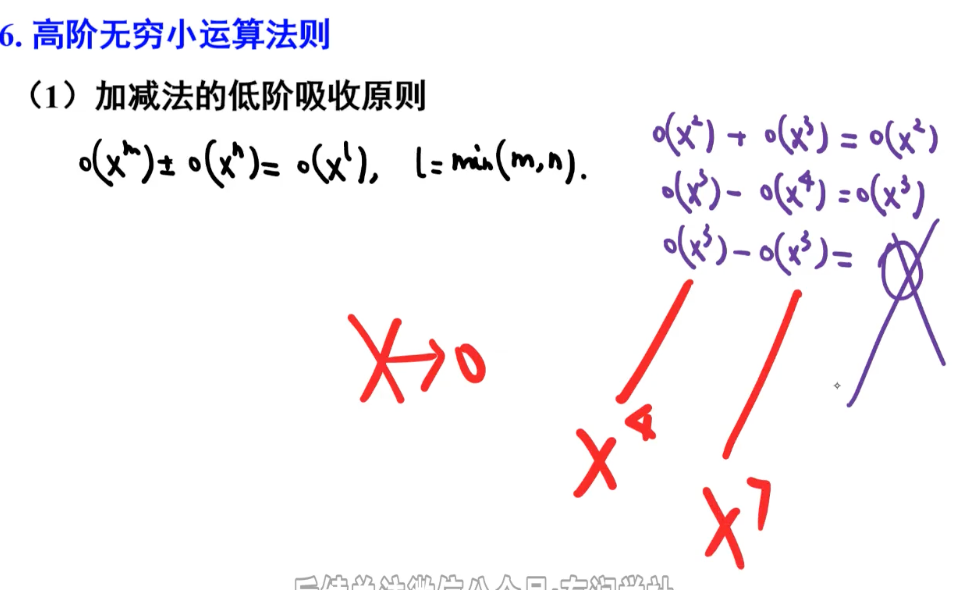 6. 高阶无穷小运算法则
（1）加减法的低阶吸收原则
o(x^m) ± o(x^n) = o(x^l), l = min(m,n).
o(x^2) + o(x^3) = o(x^2)
o(x^3) - o(x^4) = o(x^3)
o(x^3) - o(x^3) = 0
X→0
X^4
X^7